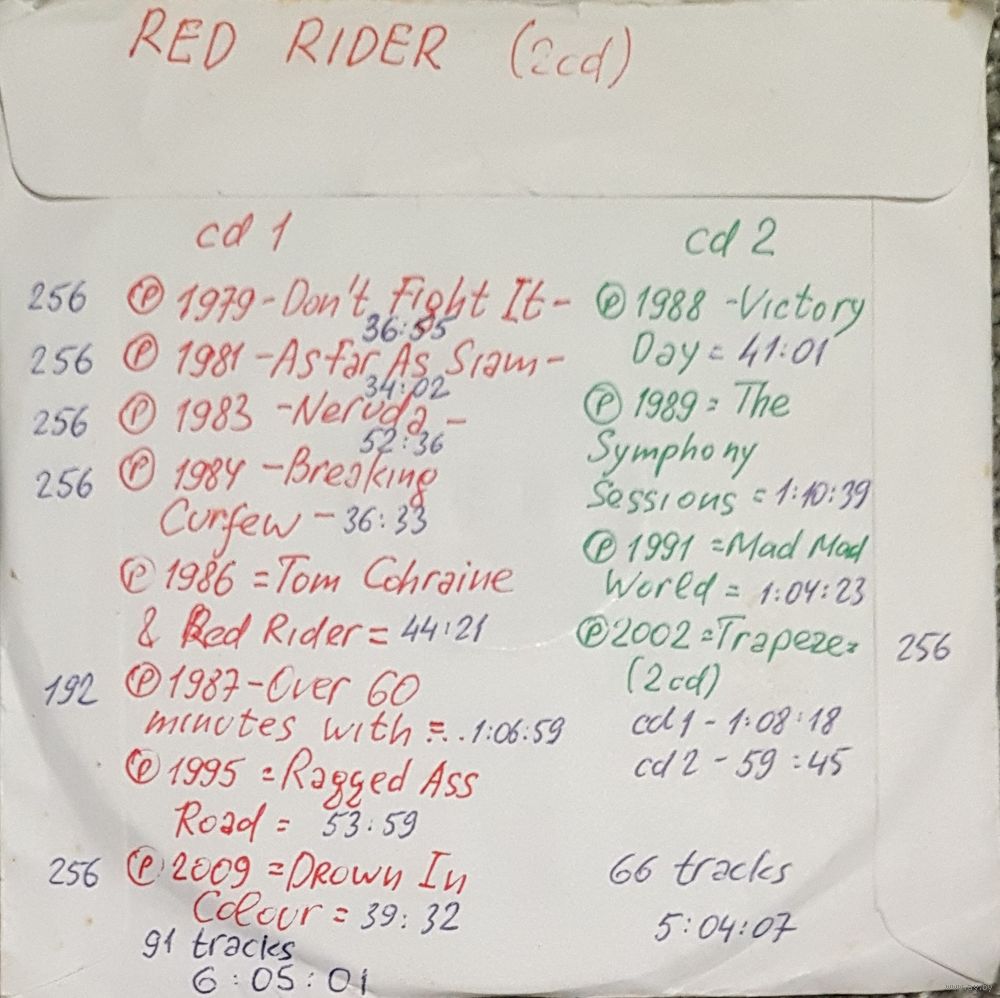 RED RIDER (2cd)
cd 1
256 Ⓟ 1979-Don't Fight It-
36:55
256 Ⓟ 1981-As far As Siam-
34:02
256 Ⓟ 1983-Neruda-
52:36
256 Ⓟ 1984-Breaking
Curfew-36:33
Ⓟ 1986=Tom Cohraine
& Red Rider=44:21
192 Ⓟ 1987-Over 60
minutes with=..1:06:59
Ⓟ 1995=Ragged Ass
Road=53:59
256 Ⓟ 2009=Drown In
Colour=39:32
91 tracks
6:05:01
cd 2
Ⓟ 1988-Victory
Day=41:01
Ⓟ 1989=The
Symphony
Sessions=1:10:39
Ⓟ 1991=Mad Mad
World=1:04:23
Ⓟ 2002=Trapeze= 256
(2cd)
cd 1-1:08:18
cd 2-59:45
66 tracks
5:04:07